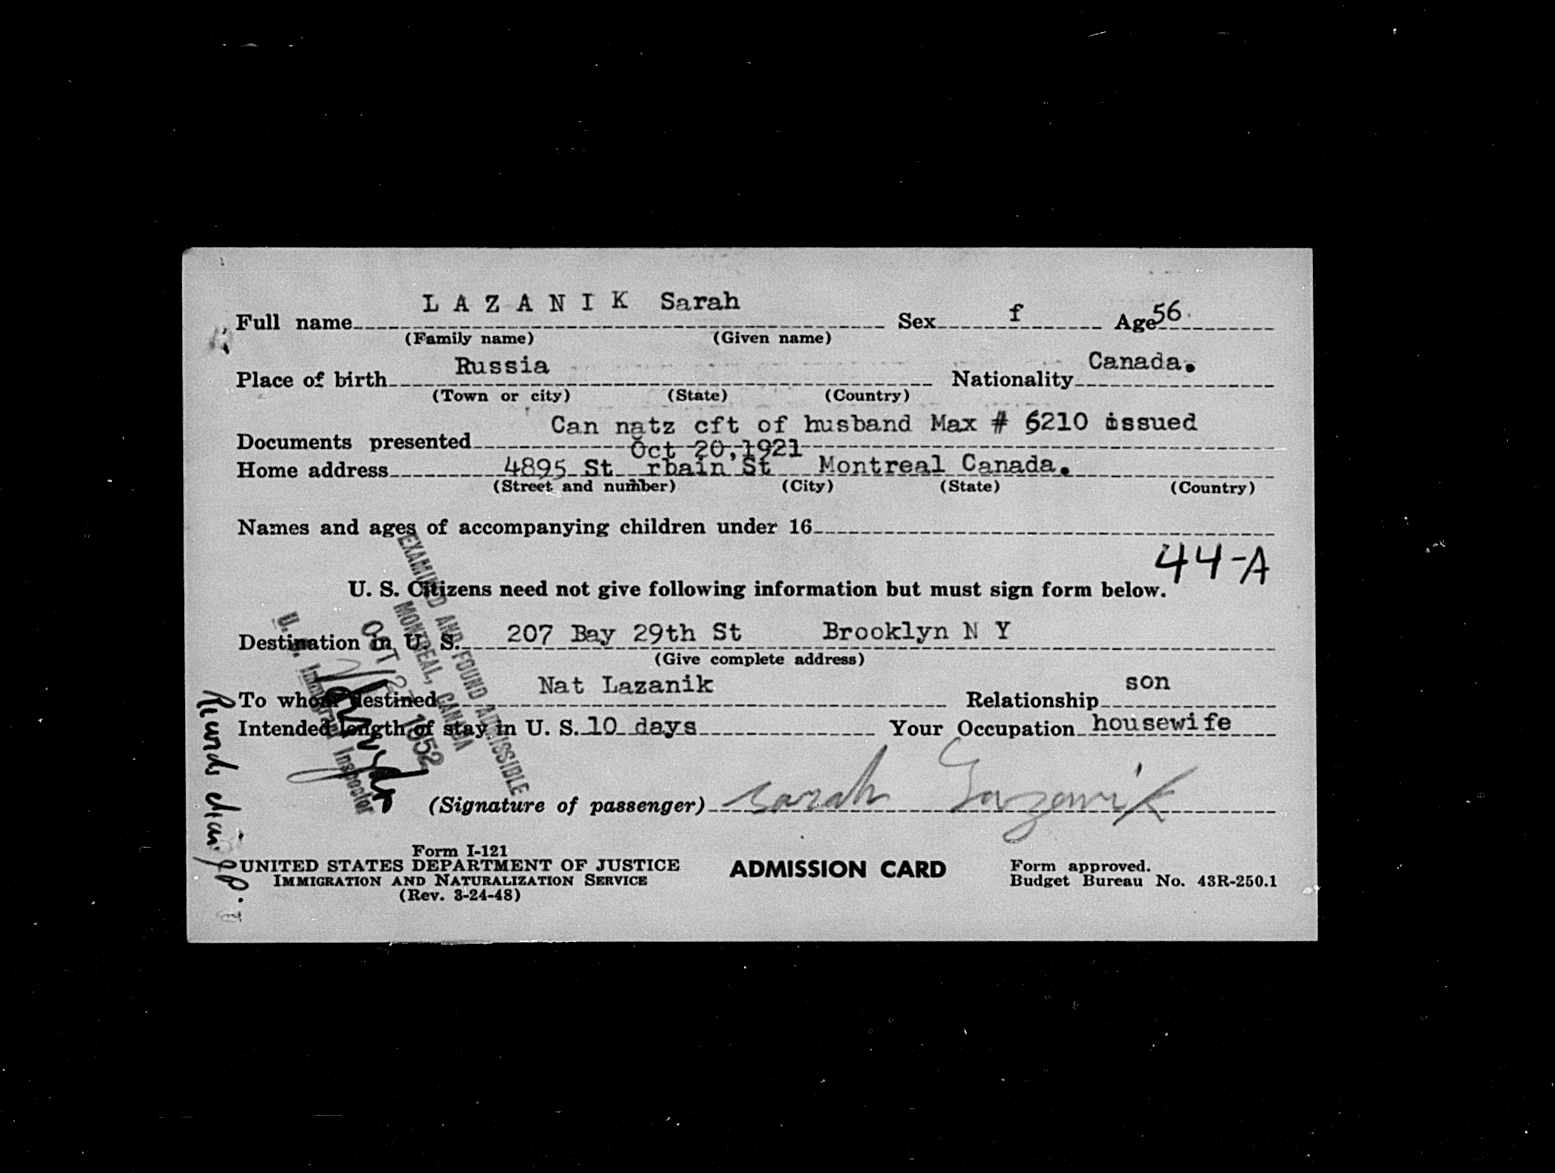 L A Z A N I K Sarah
Full name Sex f Age 56
(Family name) (Given name)
Russia Canada.
Place of birth Nationality
(Town or city) (State) (Country)
Can natz cft of husband Max # 6210 issued
Documents presented Oct 20,1921
Home address 4895 St rbain St Montreal Canada.
(Street and number) (City) (State) (Country)
Names and ages of accompanying children under 16
44-A
U. S. Citizens need not give following information but must sign form below.
Destination in U. S. 207 Bay 29th St Brooklyn N Y
(Give complete address)
To whom destined Nat Lazanik Relationship son
Intended length of stay in U. S. 10 days Your Occupation housewife
(Signature of passenger) Sarah Lazanik
EXAMINED AND FOUND ADMISSIBLE
MONTREAL, CANADA
OCT 2 - 1952
U. S. Immigrant Inspector
Form I-121
UNITED STATES DEPARTMENT OF JUSTICE
IMMIGRATION AND NATURALIZATION SERVICE
(Rev. 3-24-48)
ADMISSION CARD
Form approved.
Budget Bureau No. 43R-250.1